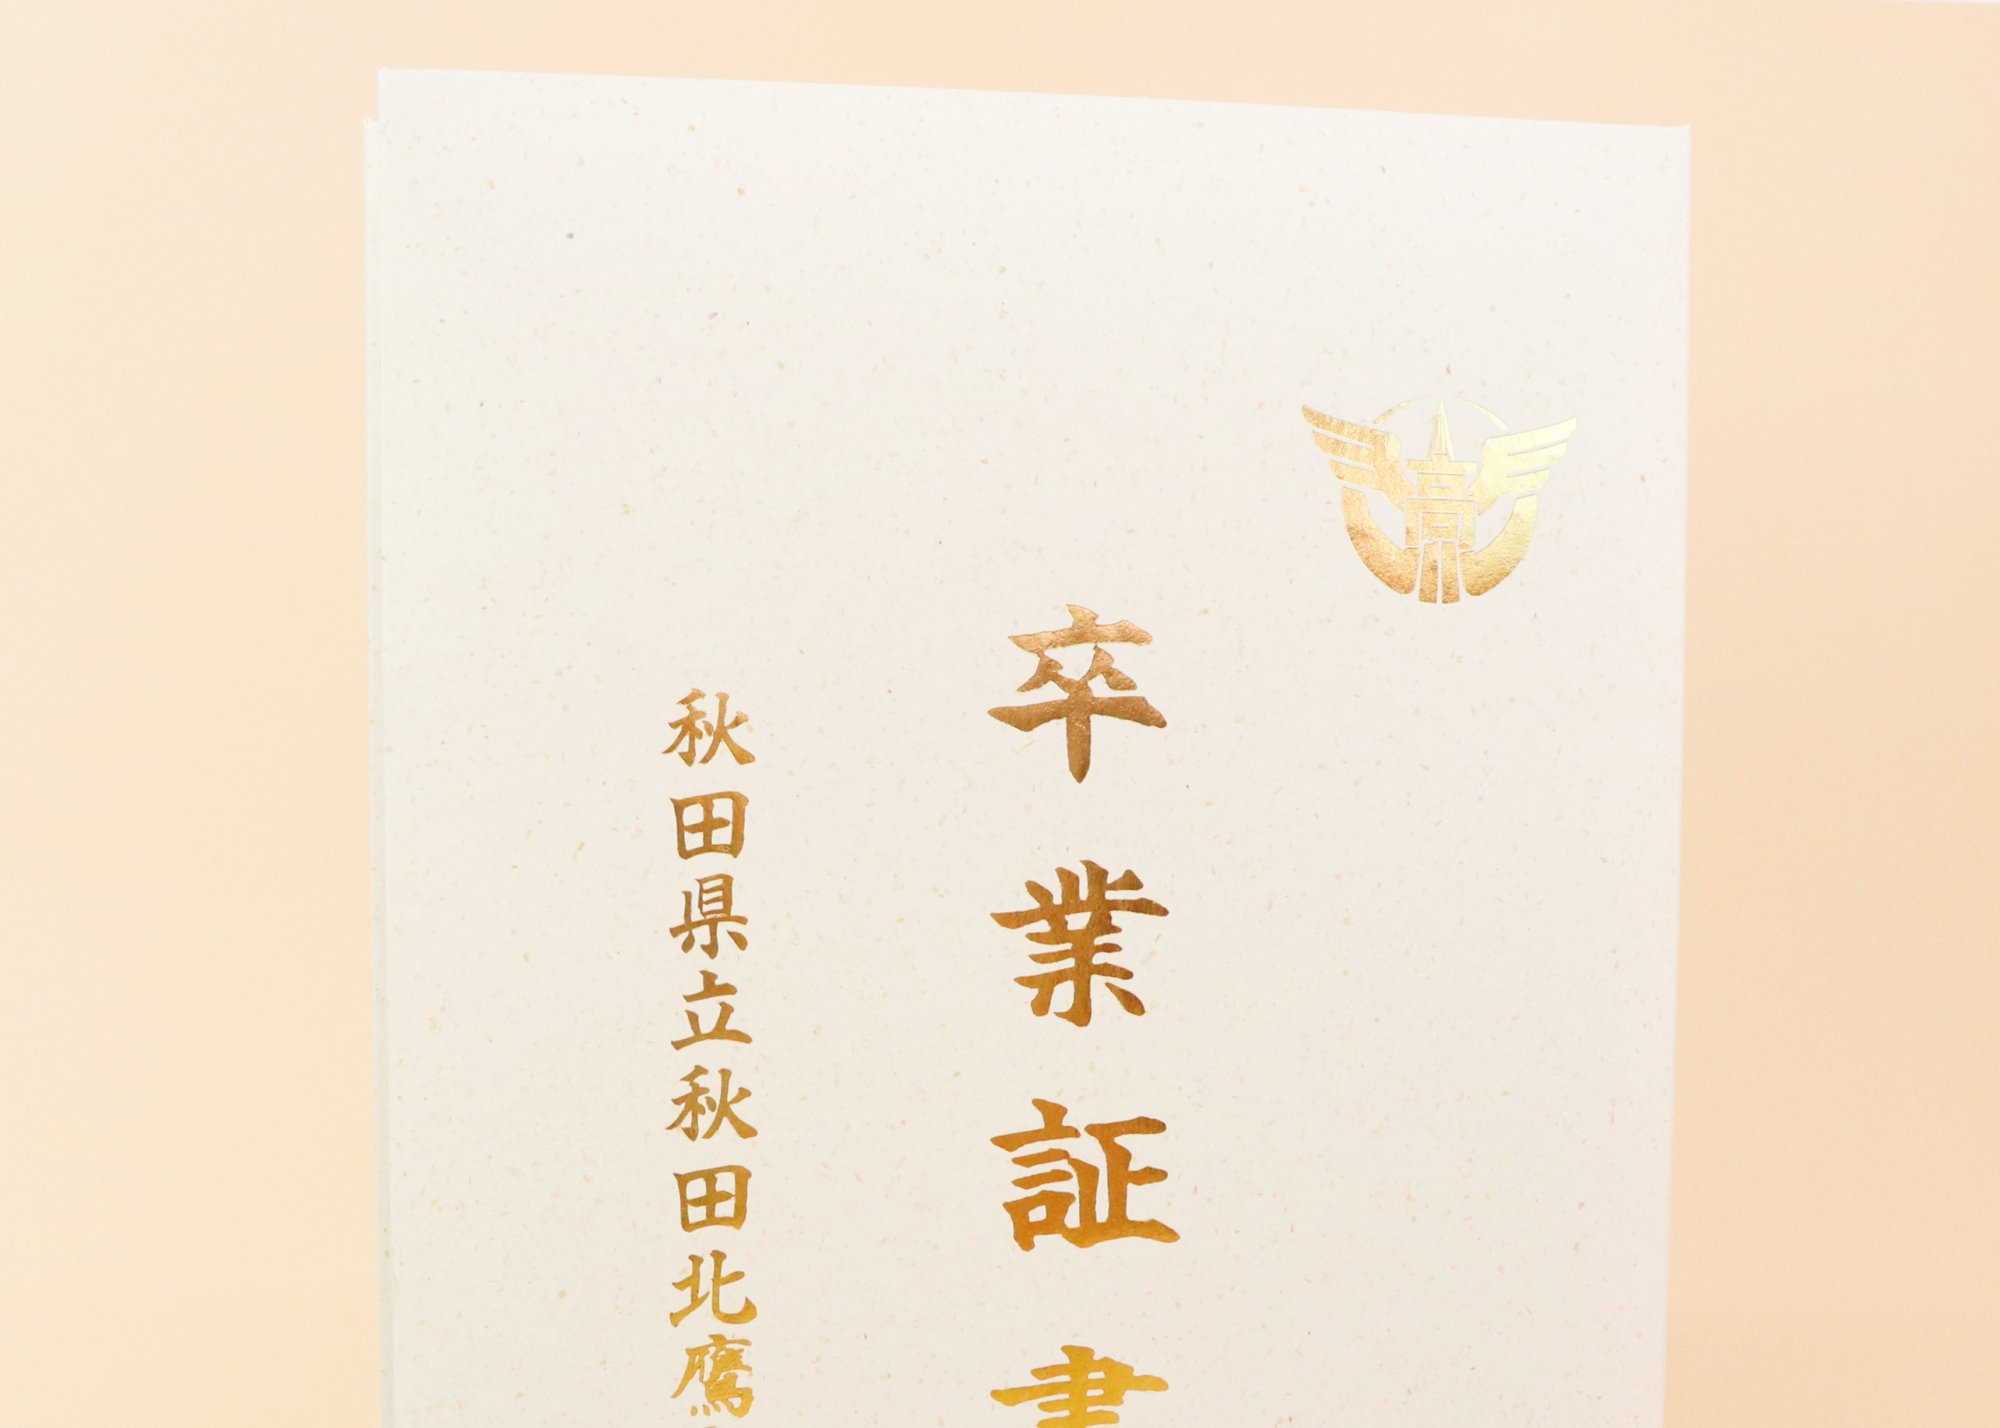 高
卒業証書
秋田県立秋田北鷹